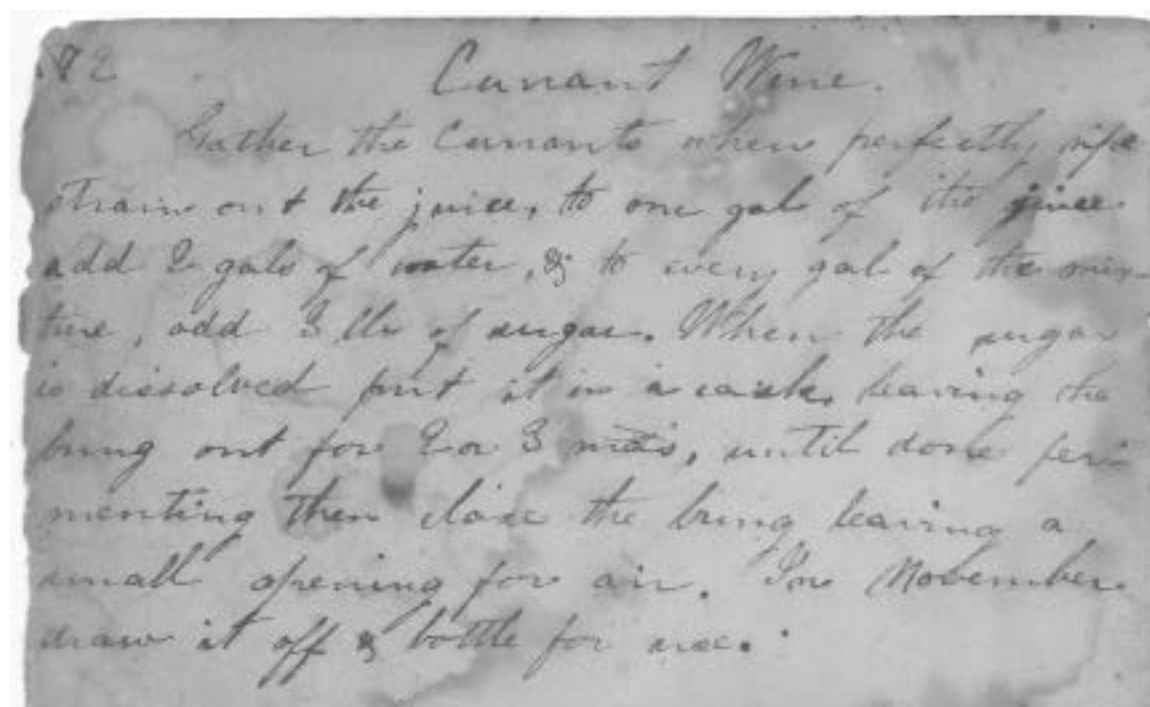 82
Currant Wine.
Gather the Currants when perfectly ripe
strain out the juice, to one gal of the juice
add 2 gals of water, & to every gal of the mix-
ture, add 3 lbs of sugar. When the sugar
is dissolved put it in a cask, leaving the
bung out for 2 or 3 , until done fer-
menting then close the bung leaving a
small opening for air. In November
draw it off & bottle for use.